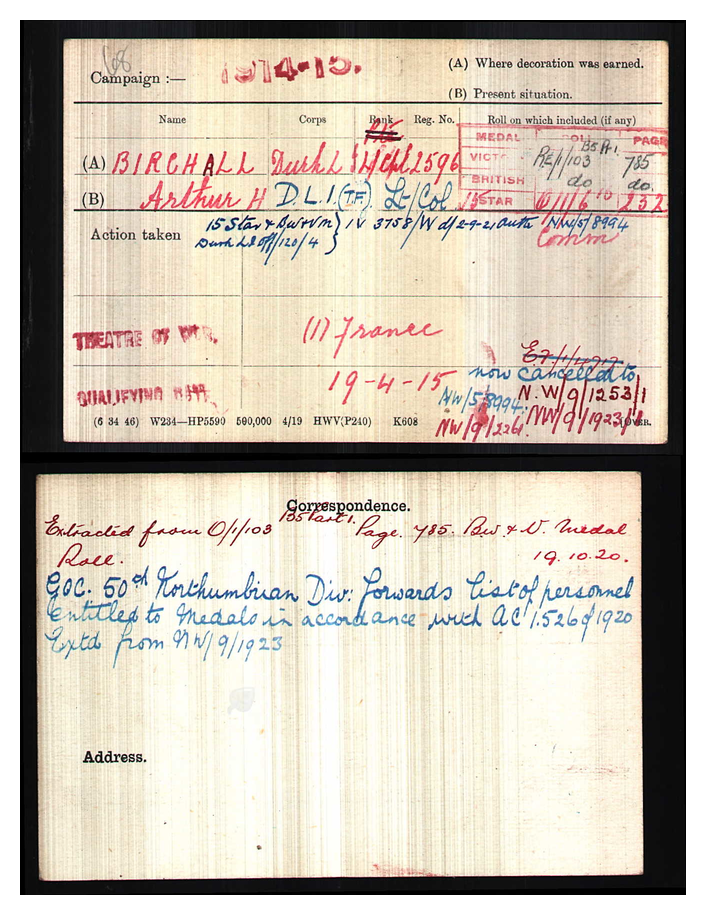 68
1914-15.
(A) Where decoration was earned.
Campaign :—
(B) Present situation.
Name Corps Rank Reg. No. Roll on which included (if any)
MEDAL ROLL PAGE
(A) BIRCHALL Durh L I L/Cpl 2596
VICTORY RE/1/103 B5 Pt 1. 785
BRITISH do do.
(B) Arthur H D.L.I. (T.F.) Lt/Col
15 STAR 0/1/6 232
Action taken 15 Star & Bw & Vm } IV 3758/W d/2-9-21 auth NW/5/8994
Durh LI Off/120/4 Comm
THEATRE OF WAR. (1) France
now cancelled to
QUALIFYING DATE 19-4-15
NW/5/8994. N.W/9/1253/1
NW/9/2261. NW/9/1923/1
(6 34 46) W234—HP5590 500,000 4/19 HWV(P240) K608 OVER.
Correspondence.
Extracted from O/1/103 B5 Part 1. Page. 785. Bw. & V. Medal
Roll. 19.10.20.
GOC. 50th Northumbrian Div: forwards list of personnel
entitled to Medals in accordance with AC 1.526 of 1920
Extd from NW/9/1923
Address.